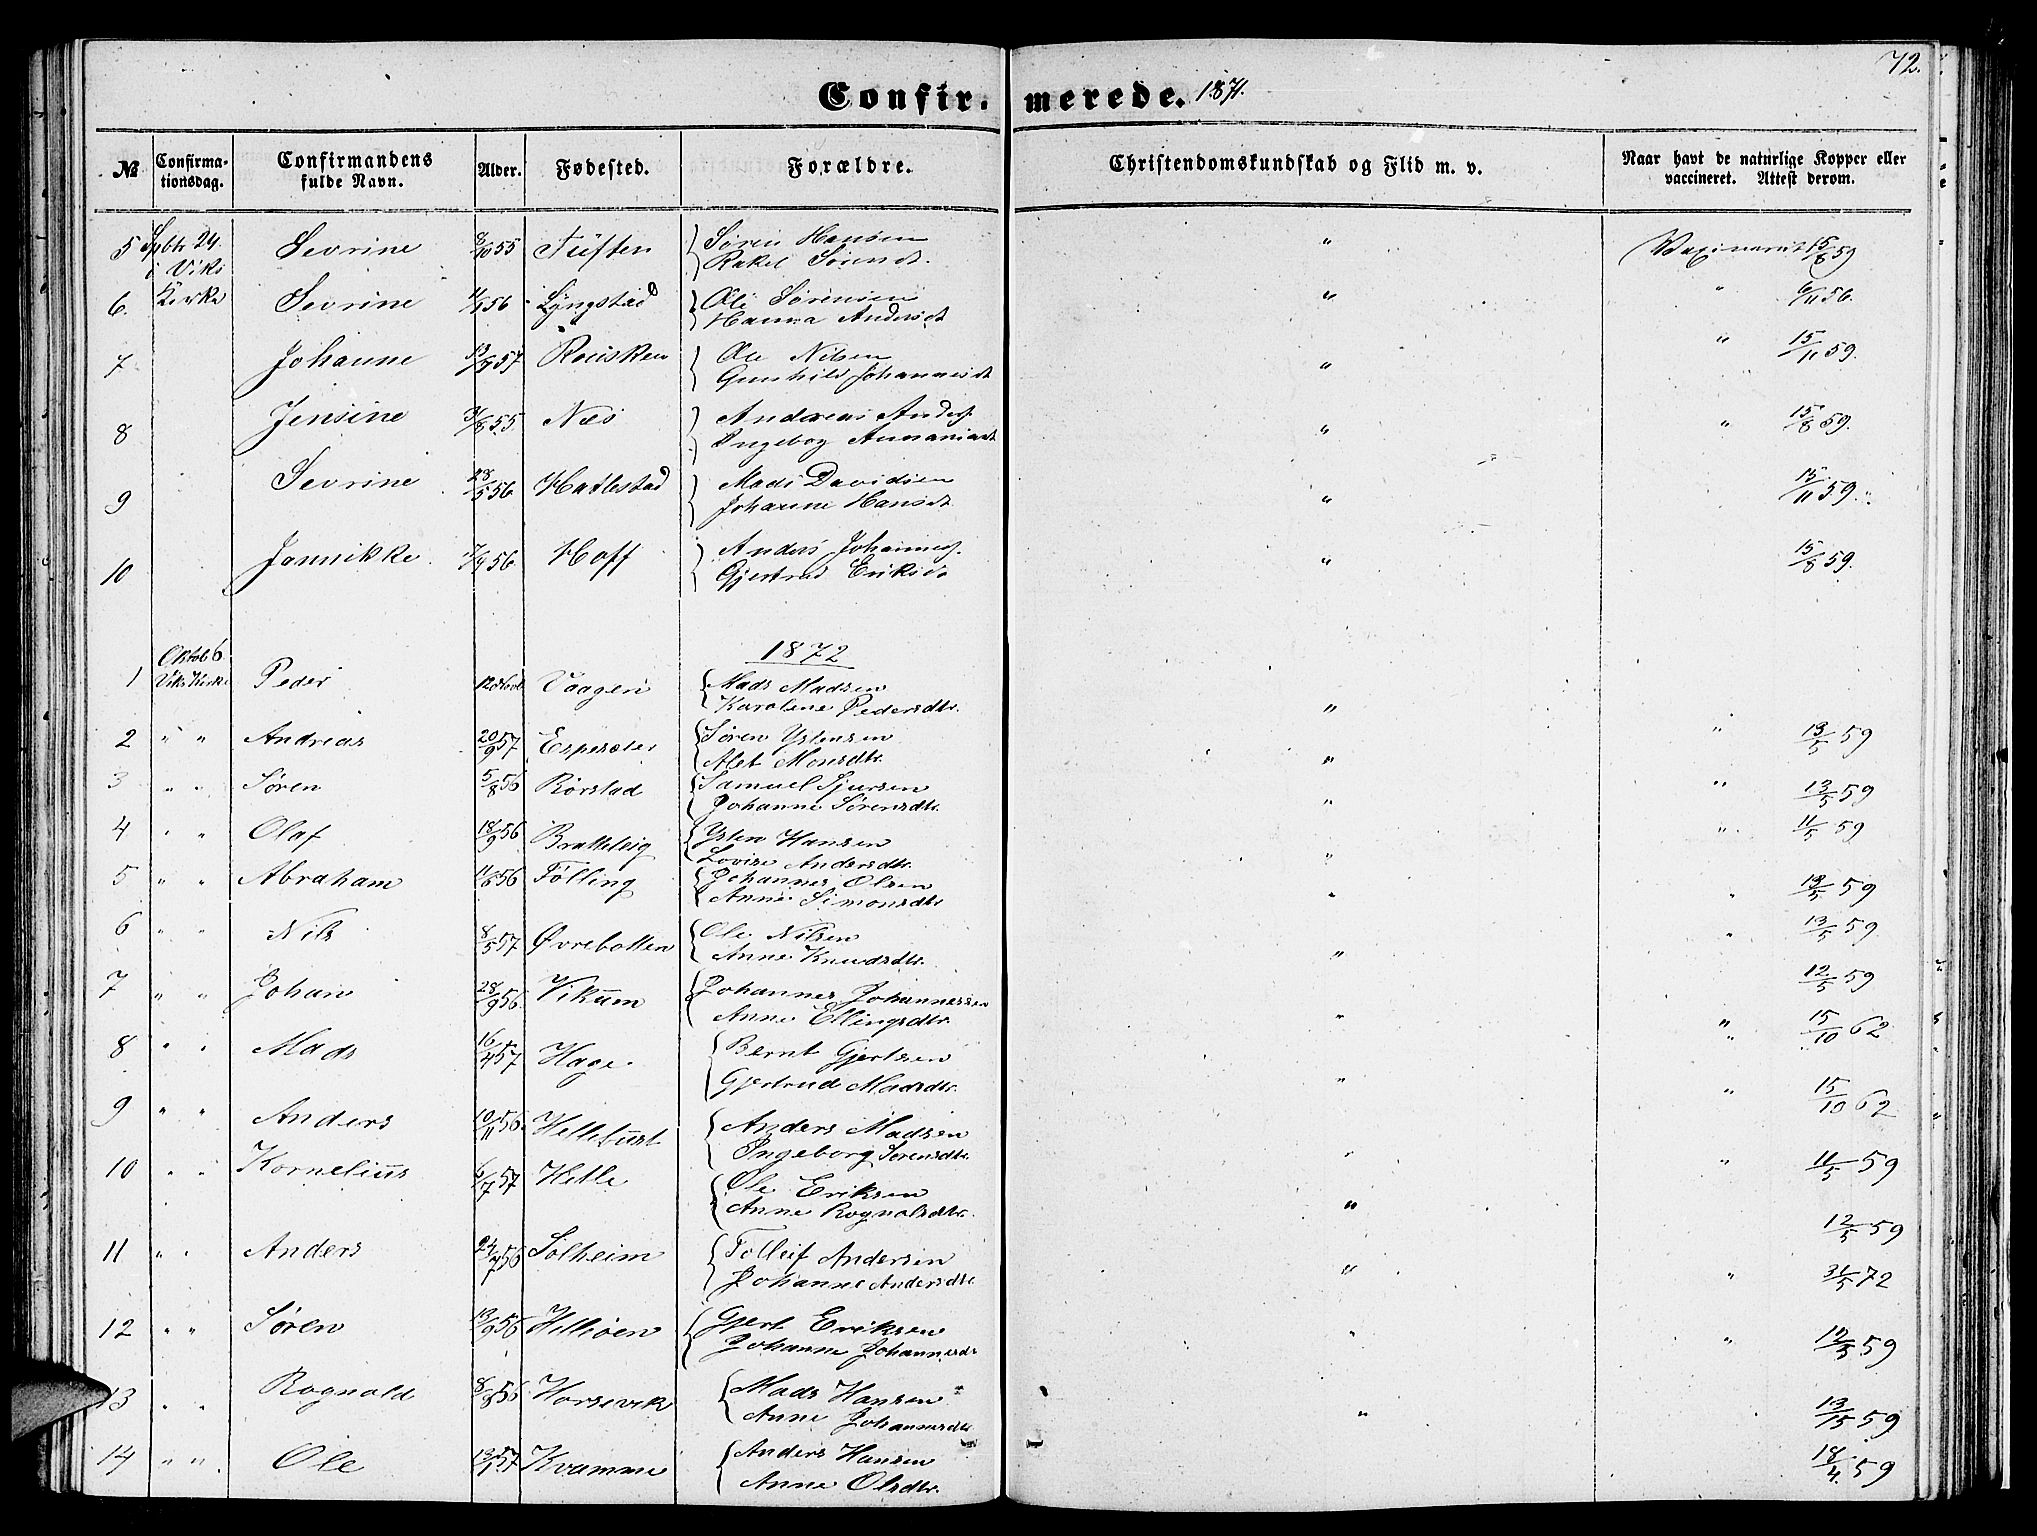 72.
Confir. merede. 1871.
№ Confirma-tionsdag. Confirmandens fulde Navn. Alder. Fødested. Forældre. Christendomskundskab og Flid m. v. Naar havt de naturlige Kopper eller vaccineret. Attest derom.
5 Septbr 24. i Viks Sevrine 8/10 55 Tuften { Søren Hansen " Vaxineret 15/8 59
Rakel Sørensdt.
6. Kirke Sevrine 56 Lyngstad { Ole Sørensen " " 6/11 56.
Hanna Andersdt
7 Johanne 13/9 57 Rousken } Ole Nilsen " " 15/11 59.
Gunhild Johannesdt
8 Jensine 3/8 55 Næs } Andreas Anders. " " 15/8 59.
Ingebog Ananiasdt
9 Sevrine 28/5 56 Hatlestad } Mads Davidsen " 15/11 59. "
Johanne Hansdt
10 Jannikke 7/9 56 Hoff } Anders Johannes. " 15/8 59.
Gjertrud Eriksdt
1872
1 Oktob 6 Viks Kirke Peder Vaagen { Mads Madsen "
Karolene Pedersdtr.
2 " " Andreas 20/9 57 Espesæter { Søren Ystensen " " 13/5 59
Alet Monsdtr.
3 " " Søren 5/8 56 Rørstad { Samuel Sjursen " " 13/5 59
Johanne Sørensdtr.
4 " " Olaf 18/9 56 Bratteleig { Ysten Hansen " " 11/5 59
Lovise Andersdtr.
5 " " Abraham 11/8 56 Tølling { Johannes Olsen " " 13/5 59
Anne Simonsdtr
6 " " Nils 8/5 57 Øvrebotten { Ole Nilsen " " 13/5 59
Anne Knudsdtr.
7 " " Johan 28/9 56. Vikum { Johannes Johannessen " 12/5 59
Anne Ellingsdtr.
8 " " Mads 16/4 57 Hage. { Bernt Gjertsen " " 15/10 62
Gjertrud Madsdtr.
9 " " Anders 10/11 56 Hellebust { Anders Madsen " " 15/10 62
Ingeborg Sørensdtr.
10 " " Kornelius 6/7 57 Hetle { Ole Eriksen " " 11/5 59
Anne Rognalsdtr.
11 " " Anders 24/7 56 Solheim { Tolleif Andersen " 12/5 59
Johanne Andersdtr. " 31/5 72
12 " " Søren 13/9 56 Helliøen { Gjert Eriksen " " 12/5 59
Johanne Johannesdr
13 " " Rognald 8/8 56 Horsevik { Mads Hansen " 13/15 59
Anne Johannesdtr
14 " " Ole 57 Kvamme { Anders Hansen 18/4. 59
Anne Olsdtr.